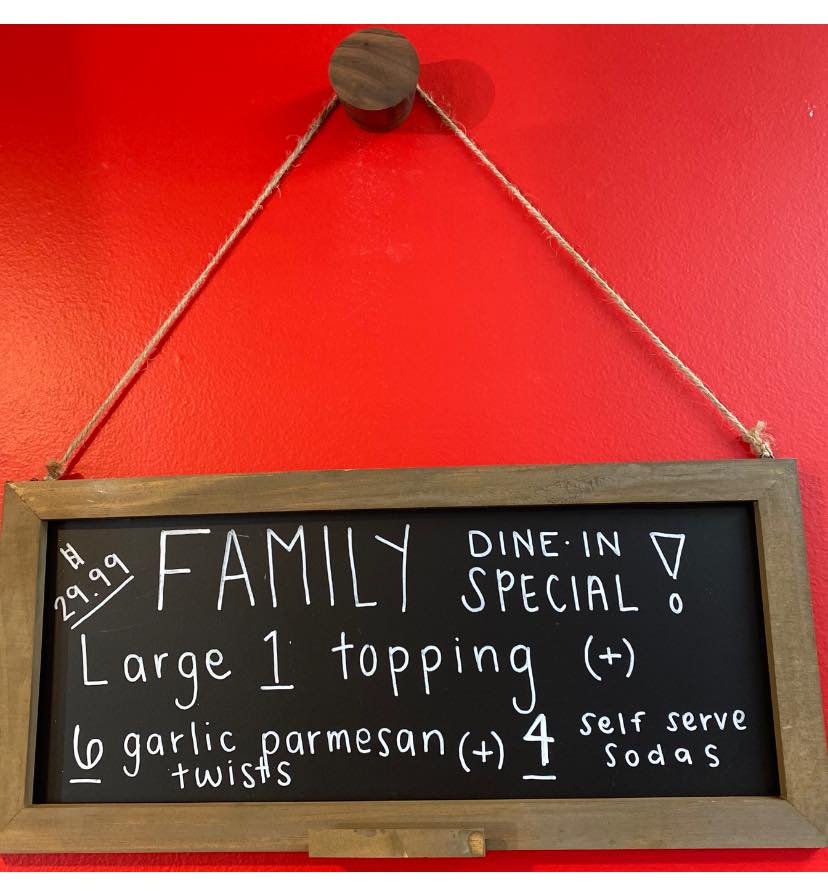 # 29.99
FAMILY DINE·IN SPECIAL!
Large 1 topping (+)
6 garlic parmesan twists (+) 4 self serve sodas